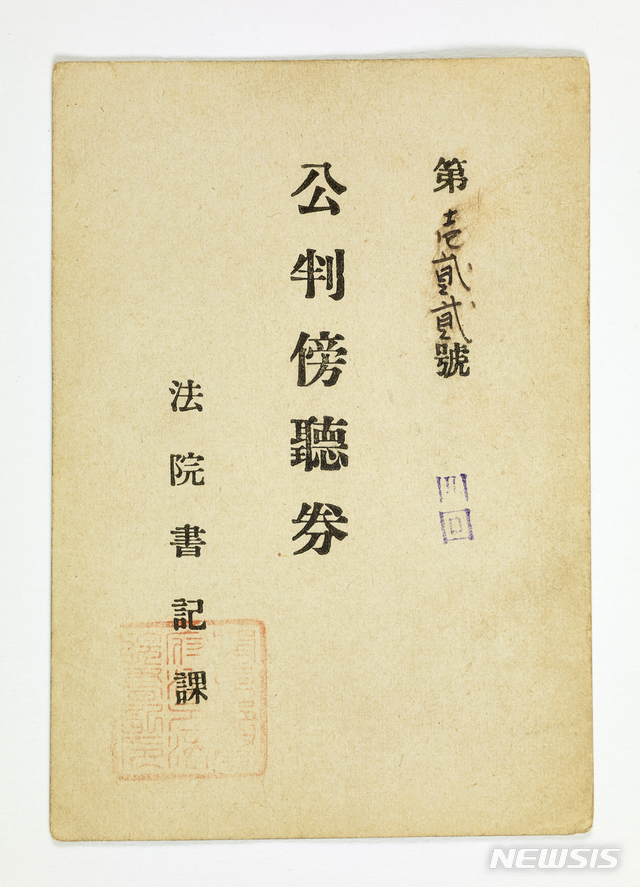 第壱貳貳號
公判傍聽券
法院書記課
NEWSIS